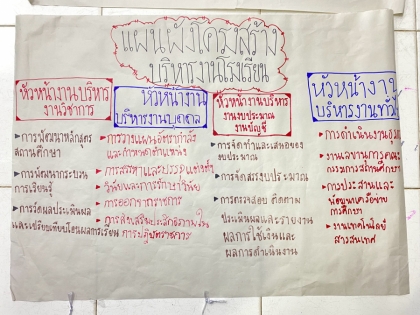 แผนผังโครงสร้าง
บริหารงานโรงเรียน
หัวหน้างานบริหาร
งานวิชาการ
- การพัฒนาหลักสูตร
สถานศึกษา
- การพัฒนากระบวน
การเรียนรู้
- การวัดผลประเมินผล
และเทียบโอนผลการเรียน
หัวหน้างาน
บริหารงานบุคคล
- การวางแผนอัตรากำลัง
และกำหนดตำแหน่ง
- การสรรหาและบรรจุแต่งตั้ง
- วินัยและการรักษาวินัย
- การออกจากราชการ
- การส่งเสริมประสิทธิภาพใน
การปฏิบัติราชการ
หัวหน้างานบริหาร
งานงบประมาณ
งานบัญชี
- การจัดทำและเสนอของบประมาณ
- การจัดสรรงบประมาณ
- การตรวจสอบ ติดตาม
ประเมินผลและรายงาน
ผลการใช้เงินและ
ผลการดำเนินงาน
หัวหน้างาน
บริหารงานทั่วไป
- การดำเนินงาน
- งานเลขานุการคณะ
กรรมการสถานศึกษา
- การประสานและ
พัฒนาเครือข่าย
การศึกษา
- งานเทคโนโลยี
สารสนเทศ